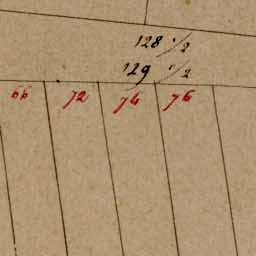 128 1/2
129 1/2
66 72 74 76